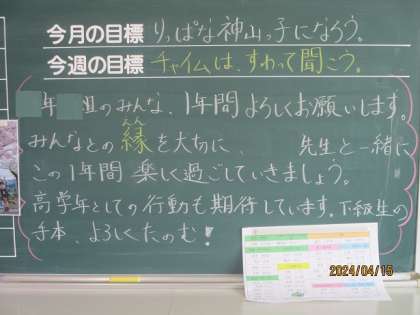 今月の目標 りっぱな神山っ子になろう。
今週の目標 チャイムは、すわって聞こう。
年 組のみんな、1年間よろしくお願いします。
えん
みんなとの縁を大切に、 先生と一緒に
この1年間 楽しく過ごしていきましょう。
高学年としての行動も期待しています。下級生の
手本、よろしくたのむ!
2024/04/15